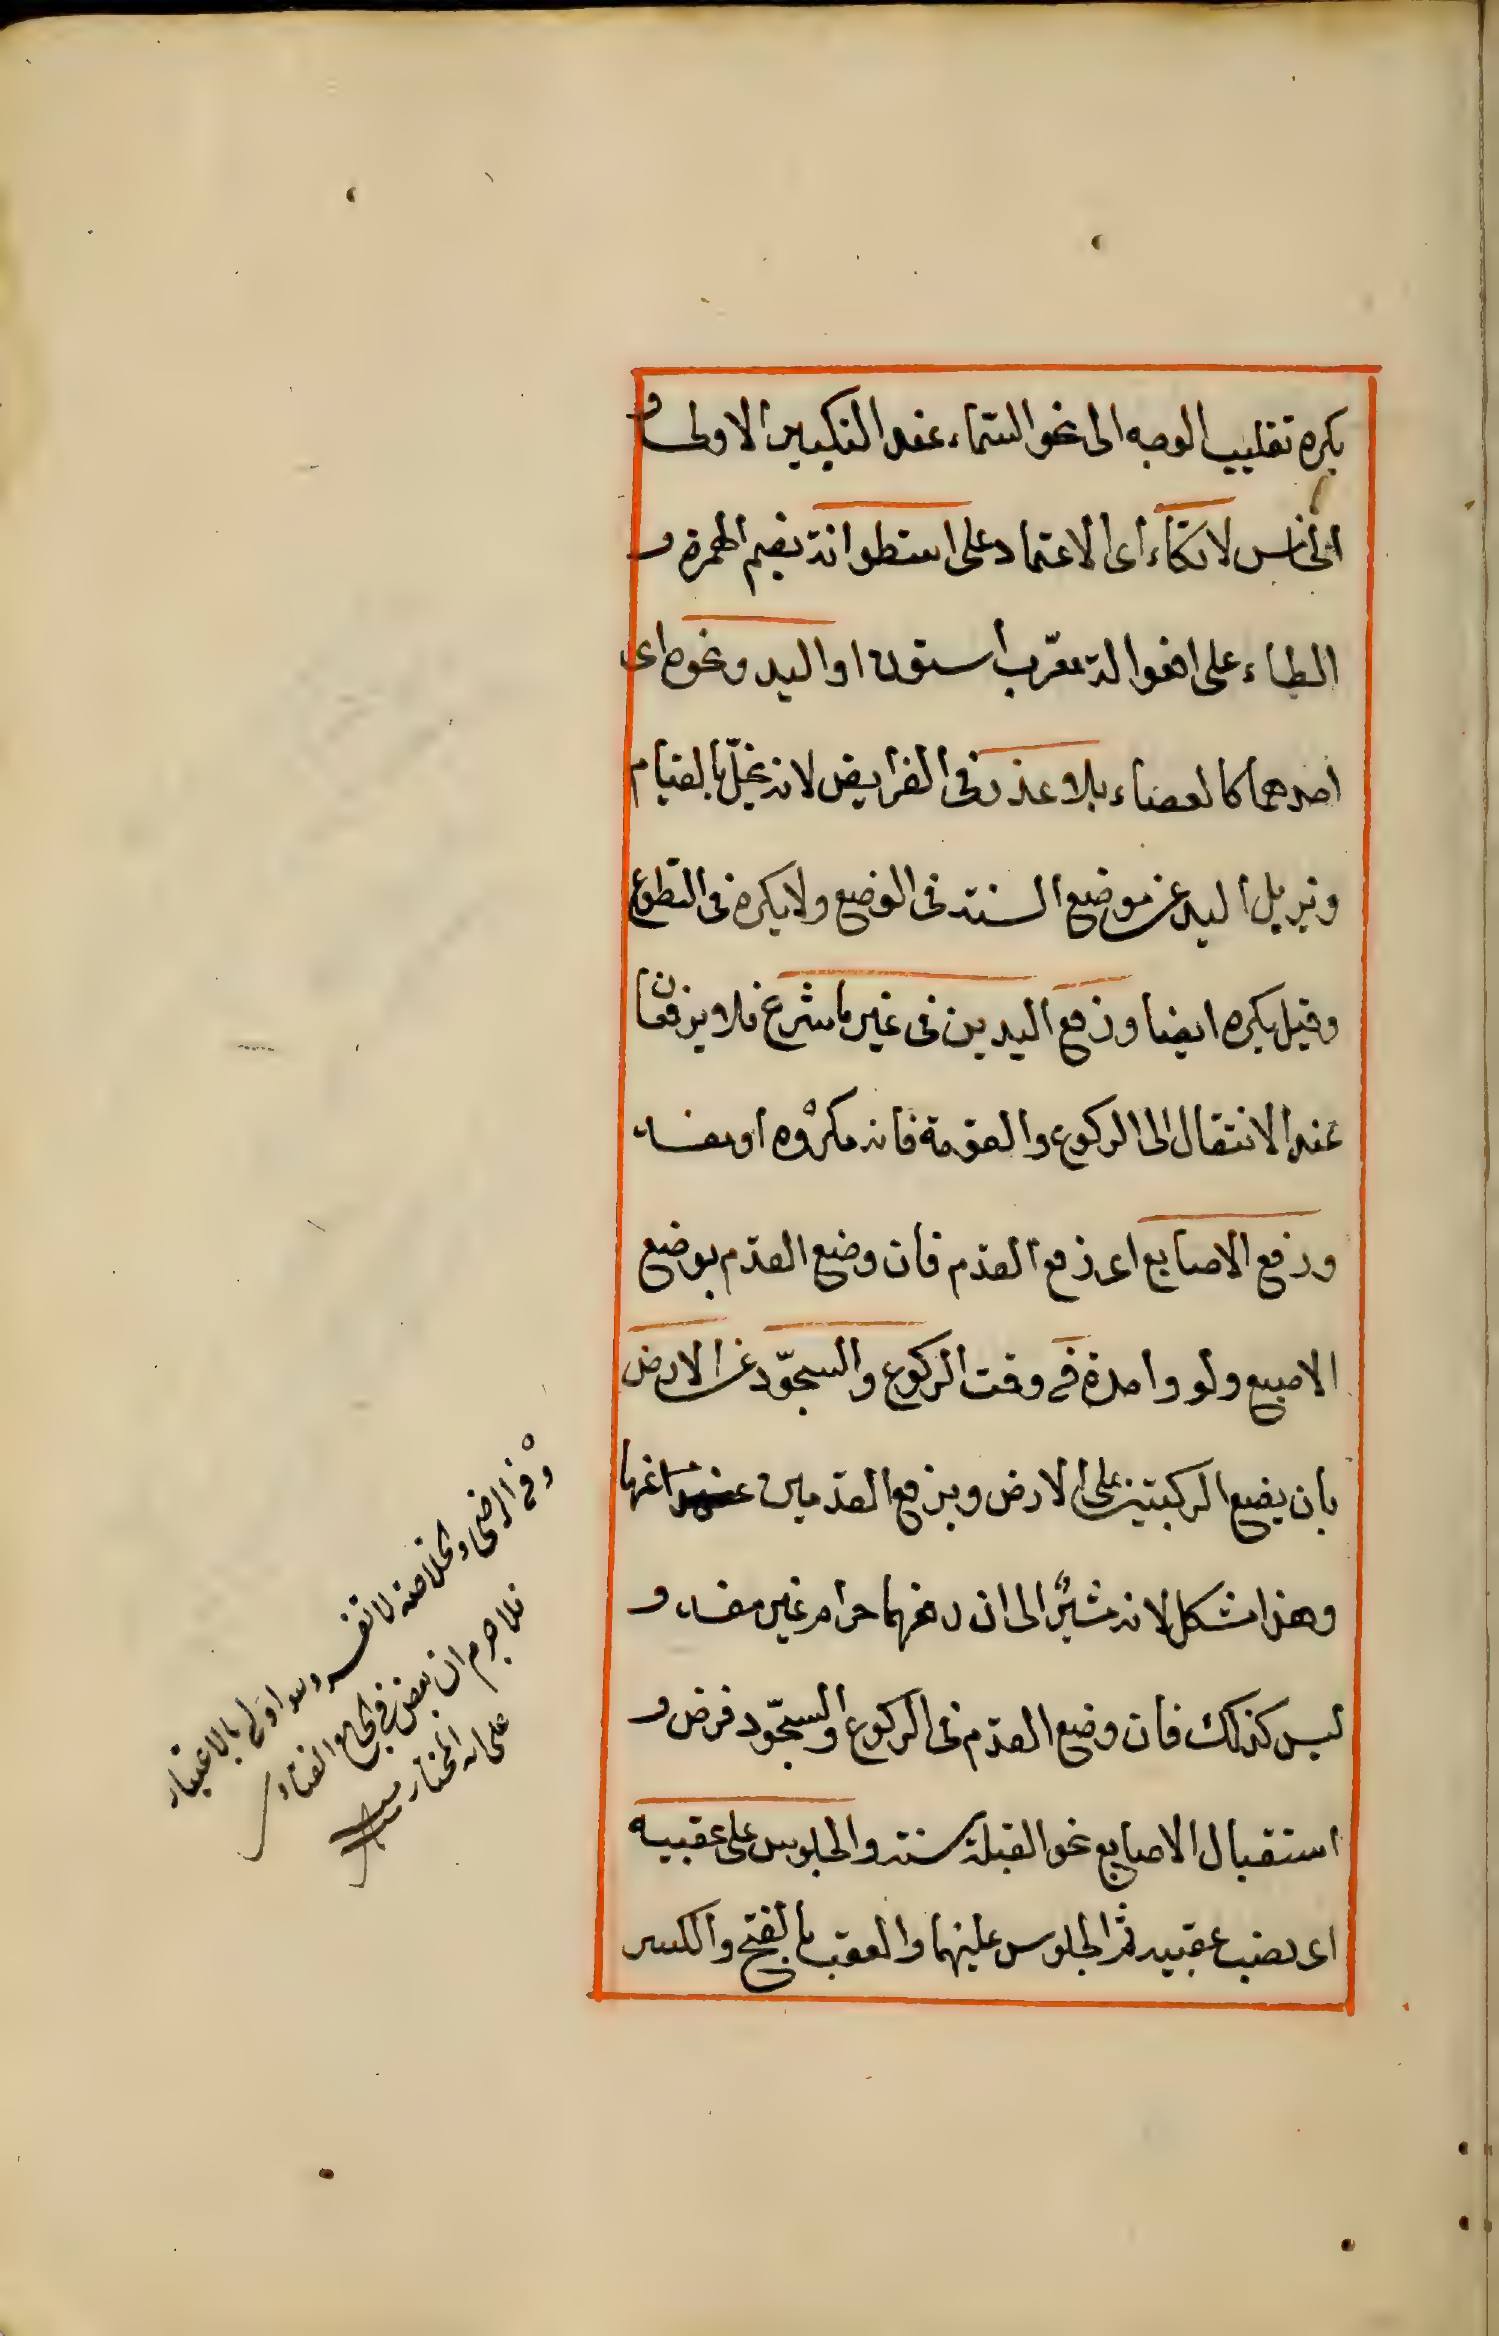 يكره تقليب الوجه الى نحو السّماء عند التكبير الاولى و
الخامس لاتكاء اى الاعتماد على اسطوانة بضم الهمزة و
الطاء على افعوالة معّرب أستون او اليد ونحوه اى
احدهما كالعصاء بلا عذر فى الفرايض لانه يخلّ بالقيام
ويزيل اليد عن موضع السنة فى الوضع ولا يكره فى التطوع
وقيل يكره ايضا ورفع اليدين فى غير ما شرع فلا يرفعان
عند الانتقال الى الركوع والقومة فانه مكروه او مفسد
ورفع الاصابع اى رفع القدم فان وضع القدم بوضع
الاصبع ولو واحدة فى وقت الركوع والسجوّد عن الارض
بان يضع الركبتين على الارض ويرفع القدمين عنها
وهذا مشكل لانه مشير الى ان رفعهما حرام غير مفسد و
ليس كذلك فان وضع القدم فى الركوع والسجوّد فرض و
استقبال الاصابع نحو القبلة سنة والجلوس على عقبيه
اى نصب عقبيه ثم الجلوس عليهما والعقب بالفتح والكسر
وفى الرضى والخلاصة لا تفسد وهو اولى بالاعتبار
فلا جرم ان بعض فى الجامع والفتاو
على انه المختار